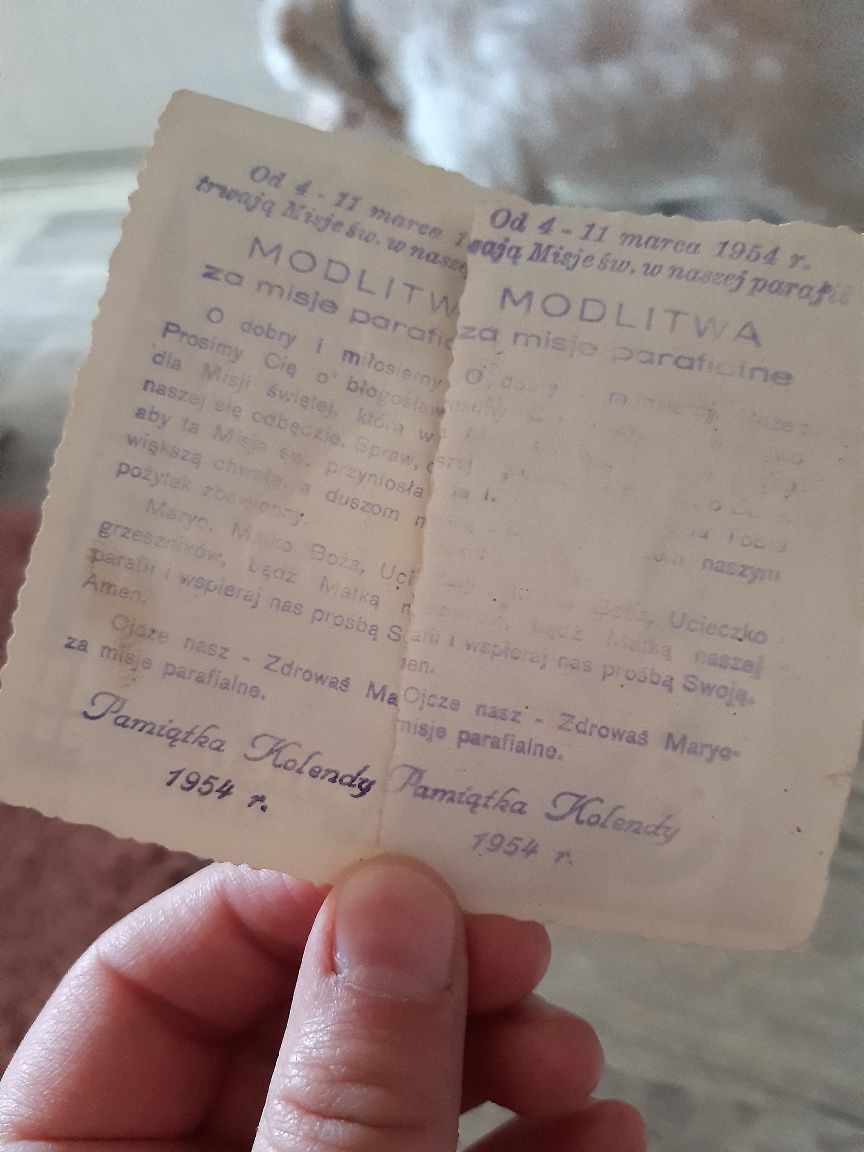 Od 4 - 11 marca
trwają Misje św. w naszej
MODLITW
za misje parafi
O dobry i miłosierny
Prosimy Cię o błogosław
dla Misji świętej, która w
naszej się odbędzie. Spraw,
aby ta Misja św. przyniosła
większą chwałę, a duszom n
pożytek zbawienny.
Maryo, Matko Boża, Uci
grzeszników, bądź Matką n
parafii i wspieraj nas prośbą S
Amen.
Ojcze nasz - Zdrowaś Ma
za misje parafialne.
Pamiątka Kolendy
1954 r.
Od 4 - 11 marca 1954 r.
wają Misje św. w naszej parafii
MODLITWA
za misje parafialne
O miłosierny Boże
Tobie
naszym
Boża, Ucieczko
bądź Matką naszej
i wspieraj nas prośbą Swoją.
en.
Ojcze nasz - Zdrowaś Maryo-
misje parafialne.
Pamiątka Kolendy
1954 r.